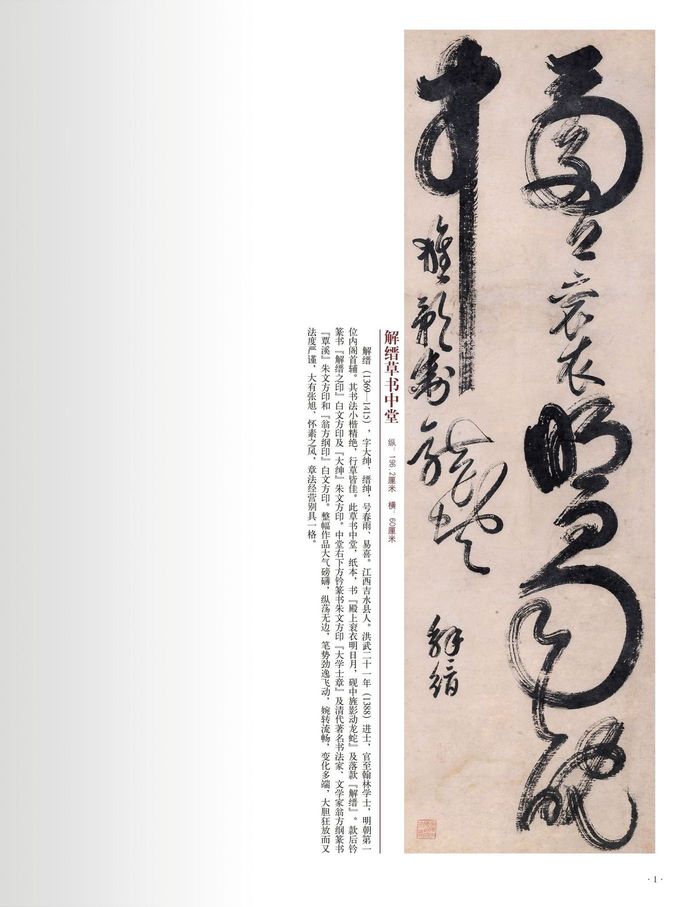 殿上衮衣明日月硯
中旌影動龍蛇
解縉
解缙草书中堂 纵：196.2厘米 横：60厘米
解缙（1369—1415），字大绅、缙绅，号春雨、易喜。江西吉水县人。洪武二十一年（1388）进士，官至翰林学士，明朝第一
位内阁首辅。其书法小楷精绝，行草皆佳。此草书中堂，纸本，书『殿上衮衣明日月，砚中旌影动龙蛇』及落款『解缙』。款后钤
篆书『解缙之印』白文方印及『大绅』朱文方印。中堂右下方钤篆书朱文方印『大学士章』及清代著名书法家、文学家翁方纲篆书
『覃溪』朱文方印和『翁方纲印』白文方印。整幅作品大气磅礴，纵荡无边，笔势劲逸飞动，婉转流畅，变化多端，大胆狂放而又
法度严谨，大有张旭、怀素之风，章法经营别具一格。
·1·